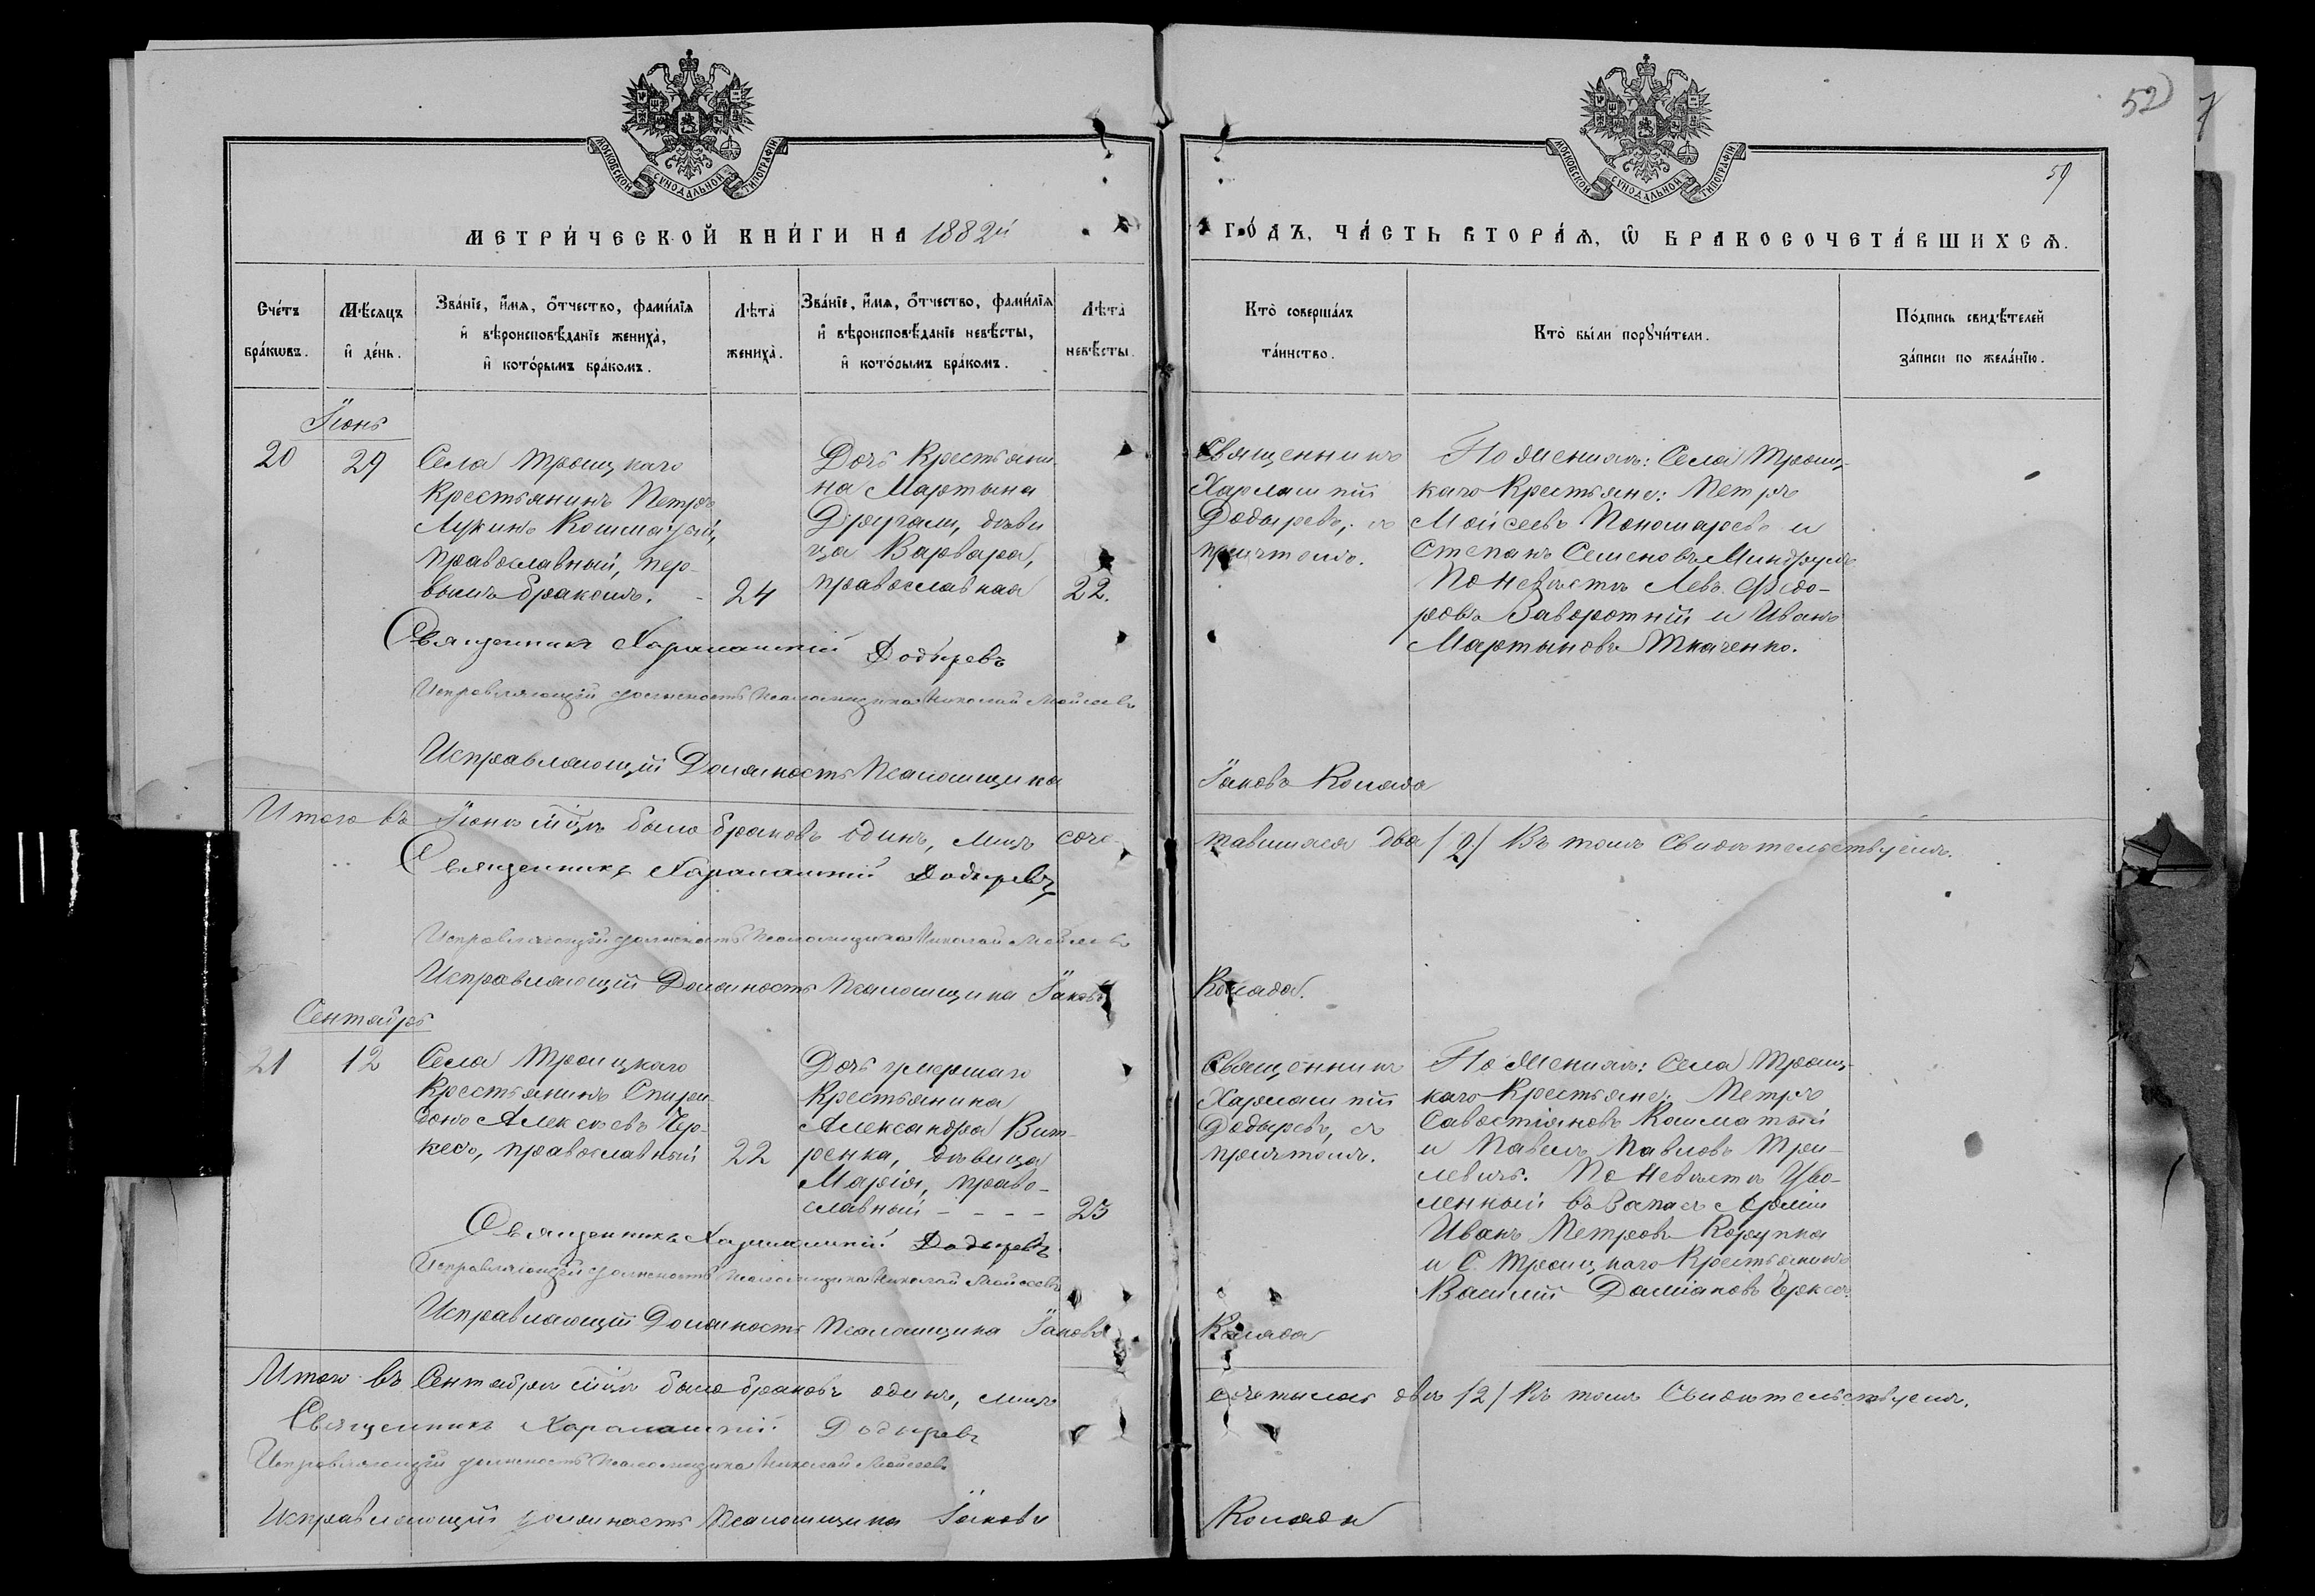 52
59
МОСКОВСКОЙ СУНОДАЛЬНОЙ ТИПОГРАФІИ
МОСКОВСКОЙ СУНОДАЛЬНОЙ ТИПОГРАФІИ
МЕТРИ́ЧЕСКОЙ КНИ́ГИ НА 1882й
ГО́ДЪ, ЧА́СТЬ ВТОРА́Ѧ, Ѡ БРАКОСОЧЕТА́ВШИХСѦ.
Сче́тъ бра́кѡвъ.
Мѣ́сѧцъ и҆ де́нь.
Зва́нїе, и҆́мѧ, ѻ҆́тчество, фами́лїѧ
и҆ вѣроисповѣ́данїе жениха̀,
и҆ кото́рымъ бра́комъ.
Лѣта̀ жениха̀.
Зва́нїе, и҆́мѧ, ѻ҆́тчество, фами́лїѧ
и҆ вѣроисповѣ́данїе невѣ́сты,
и҆ кото́рымъ бра́комъ.
Лѣта̀ невѣ́сты.
Кто̀ соверша́лъ та́инство.
Кто̀ бы́ли порꙋчи́тели.
По́дпись свидѣ́телей
за́писи по жела́нїю.
Іюнь
20
29
Села Троицкаго
Крестьянинъ Петръ
Лукинъ Кошматый,
православный, пер-
вымъ бракомъ.
24
Дочь Крестьяни-
на Мартына
Другали, дѣви
ца Варвара,
православная
22.
Священникъ
Харлампій
Додыревъ, съ
причтомъ.
По Женихѣ: Села Троиц-
каго Крестьяне: Петръ
Моисеевъ Пономаревъ и
Степанъ Семеновъ Миндрулъ
По Невѣстѣ Левъ Федо-
ровъ Заворотній и Иванъ
Мартыновъ Ткаченко.
Священникъ Харалампій Додыревъ
Исправляющій должность Псаломщика Николай Мойсеевъ
Исправляющій Должность Псаломщика
Іаковъ Коляда
Итого въ Іюнѣ мѣцѣ было браковъ одинъ, лицъ соче-
тавшихся два /2/ Въ томъ Свидѣтельствуемъ.
Священникъ Харалампій Додыревъ
Исправляющій должность Псаломщика Николай Мойсеевъ
Исправляющій Должность Псаломщика Іаковъ
Коляда.
Сентябрь
21
12
Села Троицкаго
Крестьянинъ Спири-
донъ Алексѣевъ Чер-
кесъ, православный
22
Дочь умершаго
Крестьянина
Александра Вит-
ренка, дѣвица
Марія, право-
славный - - - -
23
Священникъ
Харлампій
Додыревъ, съ
причтомъ.
По Женихѣ: Села Троиц-
каго Крестьяне: Петръ
Савостіановъ Кошматый
и Павелъ Павловъ Три-
левичъ. По Невѣстѣ Уво-
ленный въ Запасъ Арміи
Иванъ Петровъ Корупка
и С. Троицкаго Крестьянинъ
Василій Даміановъ Черкесъ.
Священникъ Харалампій Додыревъ
Исправляющій должность Псаломщика Николай Мойсеевъ
Исправляющій Должность Псаломщика Іаковъ
Коляда
Итого въ Сентябрѣ мѣцѣ было браковъ одинъ, лицъ
сочеталось двѣ /2/ Въ томъ Свидѣтельствуемъ.
Священникъ Харалампій Додыревъ
Исправляющій должность Псаломщика Николай Мойсеевъ
Исправляющій должность Псаломщика Іаковъ
Коляда